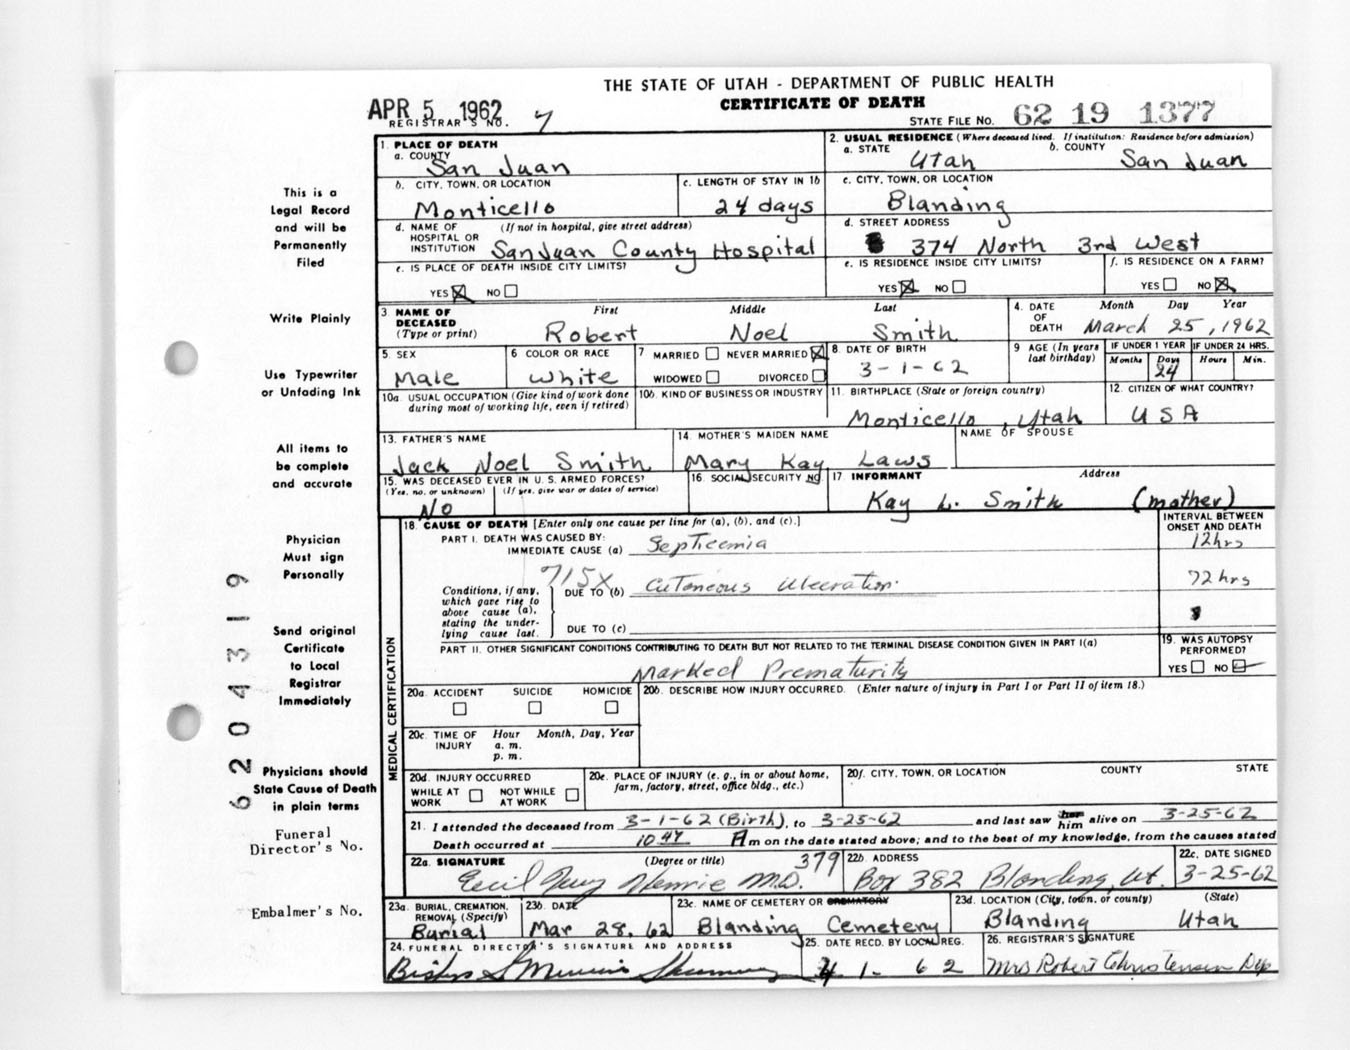 THE STATE OF UTAH - DEPARTMENT OF PUBLIC HEALTH
CERTIFICATE OF DEATH
APR 5 1962
REGISTRAR'S NO. 7
STATE FILE NO. 62 19 1377
This is a
Legal Record
and will be
Permanently
Filed
Write Plainly
Use Typewriter
or Unfading Ink
All items to
be complete
and accurate
Physician
Must sign
Personally
Send original
Certificate
to Local
Registrar
Immediately
Physicians should
State Cause of Death
in plain terms
Funeral
Director's No.
Embalmer's No.
6204319
1. PLACE OF DEATH
a. COUNTY
San Juan
b. CITY, TOWN, OR LOCATION
Monticello
c. LENGTH OF STAY IN 1b
24 days
d. NAME OF HOSPITAL OR INSTITUTION (If not in hospital, give street address)
San Juan County Hospital
e. IS PLACE OF DEATH INSIDE CITY LIMITS?
YES NO
2. USUAL RESIDENCE (Where deceased lived. If institution: Residence before admission)
a. STATE Utah b. COUNTY San Juan
c. CITY, TOWN, OR LOCATION
Blanding
d. STREET ADDRESS
374 North 3rd West
e. IS RESIDENCE INSIDE CITY LIMITS?
YES NO
f. IS RESIDENCE ON A FARM?
YES NO
3. NAME OF DECEASED (Type or print)
First Middle Last
Robert Noel Smith
4. DATE OF DEATH Month Day Year
March 25, 1962
5. SEX
Male
6 COLOR OR RACE
White
7 MARRIED NEVER MARRIED
WIDOWED DIVORCED
8. DATE OF BIRTH
3-1-62
9 AGE (In years last birthday)
IF UNDER 1 YEAR IF UNDER 24 HRS.
Months Days Hours Min.
24
10a. USUAL OCCUPATION (Give kind of work done during most of working life, even if retired)
10b. KIND OF BUSINESS OR INDUSTRY
11. BIRTHPLACE (State or foreign country)
Monticello, Utah
12. CITIZEN OF WHAT COUNTRY?
USA
13. FATHER'S NAME
Jack Noel Smith
14. MOTHER'S MAIDEN NAME
Mary Kay Laws
NAME OF SPOUSE
15. WAS DECEASED EVER IN U. S. ARMED FORCES?
(Yes, no. or unknown) (If yes, give war or dates of service)
No
16. SOCIAL SECURITY NO.
17. INFORMANT Address
Kay L. Smith (mother)
MEDICAL CERTIFICATION
18. CAUSE OF DEATH [Enter only one cause per line for (a), (b), and (c).]
INTERVAL BETWEEN ONSET AND DEATH
PART I. DEATH WAS CAUSED BY:
IMMEDIATE CAUSE (a) Septicemia 12hrs
715X
Conditions, if any, which gave rise to above cause (a), stating the underlying cause last.
DUE TO (b) Cutaneous Ulceration 72 hrs
DUE TO (c)
PART II. OTHER SIGNIFICANT CONDITIONS CONTRIBUTING TO DEATH BUT NOT RELATED TO THE TERMINAL DISEASE CONDITION GIVEN IN PART I(a)
Marked Prematurity
19. WAS AUTOPSY PERFORMED?
YES NO
20a. ACCIDENT SUICIDE HOMICIDE
20b. DESCRIBE HOW INJURY OCCURRED. (Enter nature of injury in Part I or Part II of item 18.)
20c. TIME OF INJURY Hour Month, Day, Year
a. m.
p. m.
20d. INJURY OCCURRED
WHILE AT WORK NOT WHILE AT WORK
20e. PLACE OF INJURY (e. g., in or about home, farm, factory, street, office bldg., etc.)
20f. CITY, TOWN, OR LOCATION COUNTY STATE
21. I attended the deceased from 3-1-62 (Birth), to 3-25-62 and last saw her him alive on 3-25-62
Death occurred at 10 47 Am on the date stated above; and to the best of my knowledge, from the causes stated
22a. SIGNATURE (Degree or title)
379
M.D.
22b. ADDRESS
Box 382 Blanding, Ut.
22c. DATE SIGNED
3-25-62
23a. BURIAL, CREMATION, REMOVAL (Specify)
Burial
23b. DATE
Mar 28, 62
23c. NAME OF CEMETERY OR CREMATORY
Blanding Cemetery
23d. LOCATION (City, town, or county) (State)
Blanding Utah
24. FUNERAL DIRECTOR'S SIGNATURE AND ADDRESS
25. DATE RECD. BY LOCAL REG.
4 1- 62
26. REGISTRAR'S SIGNATURE
Mrs Robert Christensen Dep